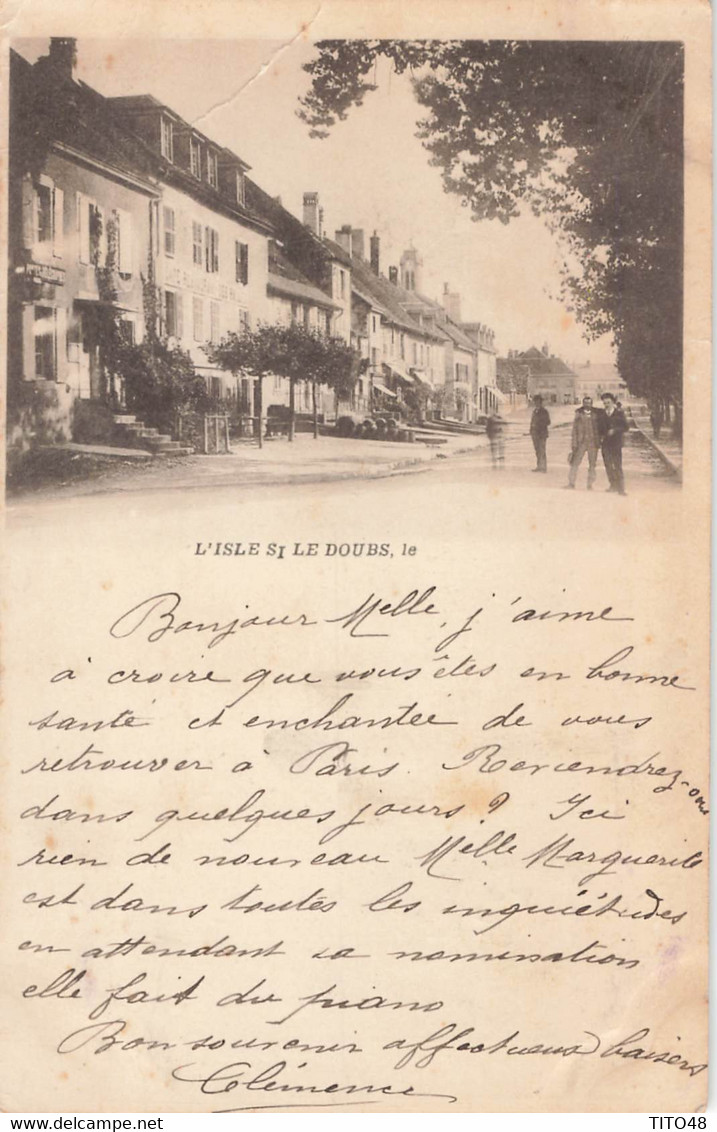 L'ISLE S/ LE DOUBS, le
Bonjour Melle, j'aime
à croire que vous êtes en bonne
santé et enchantée de vous
retrouver à Paris. Reviendrez-vous
dans quelques jours? Ici
rien de nouveau Melle Marguerite
est dans toutes les inquiétudes
en attendant sa nomination
elle fait du piano
Bon souvenir affectueux baisers
Clémence
TITO48